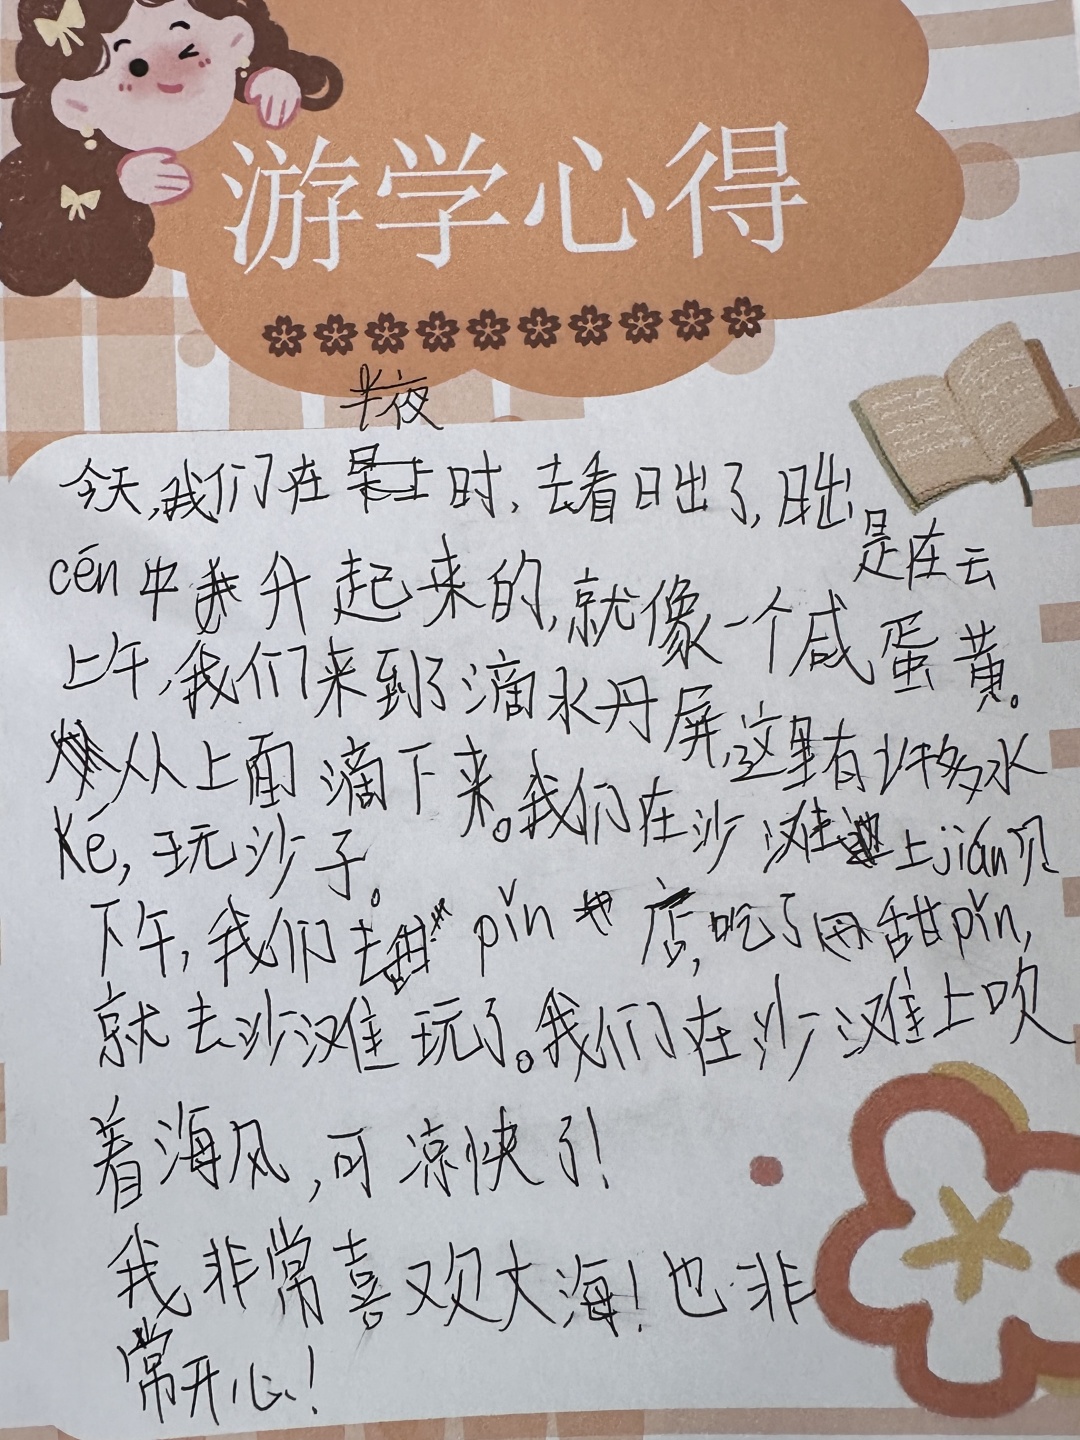 游学心得
半夜
今天,我们在早上时,去看日出了,日出是在云
cén中升起来的,就像一个咸蛋黄。
上午,我们来到了滴水丹屏,这里有许多水
从上面滴下来。我们在沙滩上jiǎn贝
Ké,玩沙子。
下午,我们去甜pǐn店,吃了甜pǐn,
就去沙滩玩了。我们在沙滩上吹
着海风,可凉快了!
我非常喜欢大海!也非
常开心!